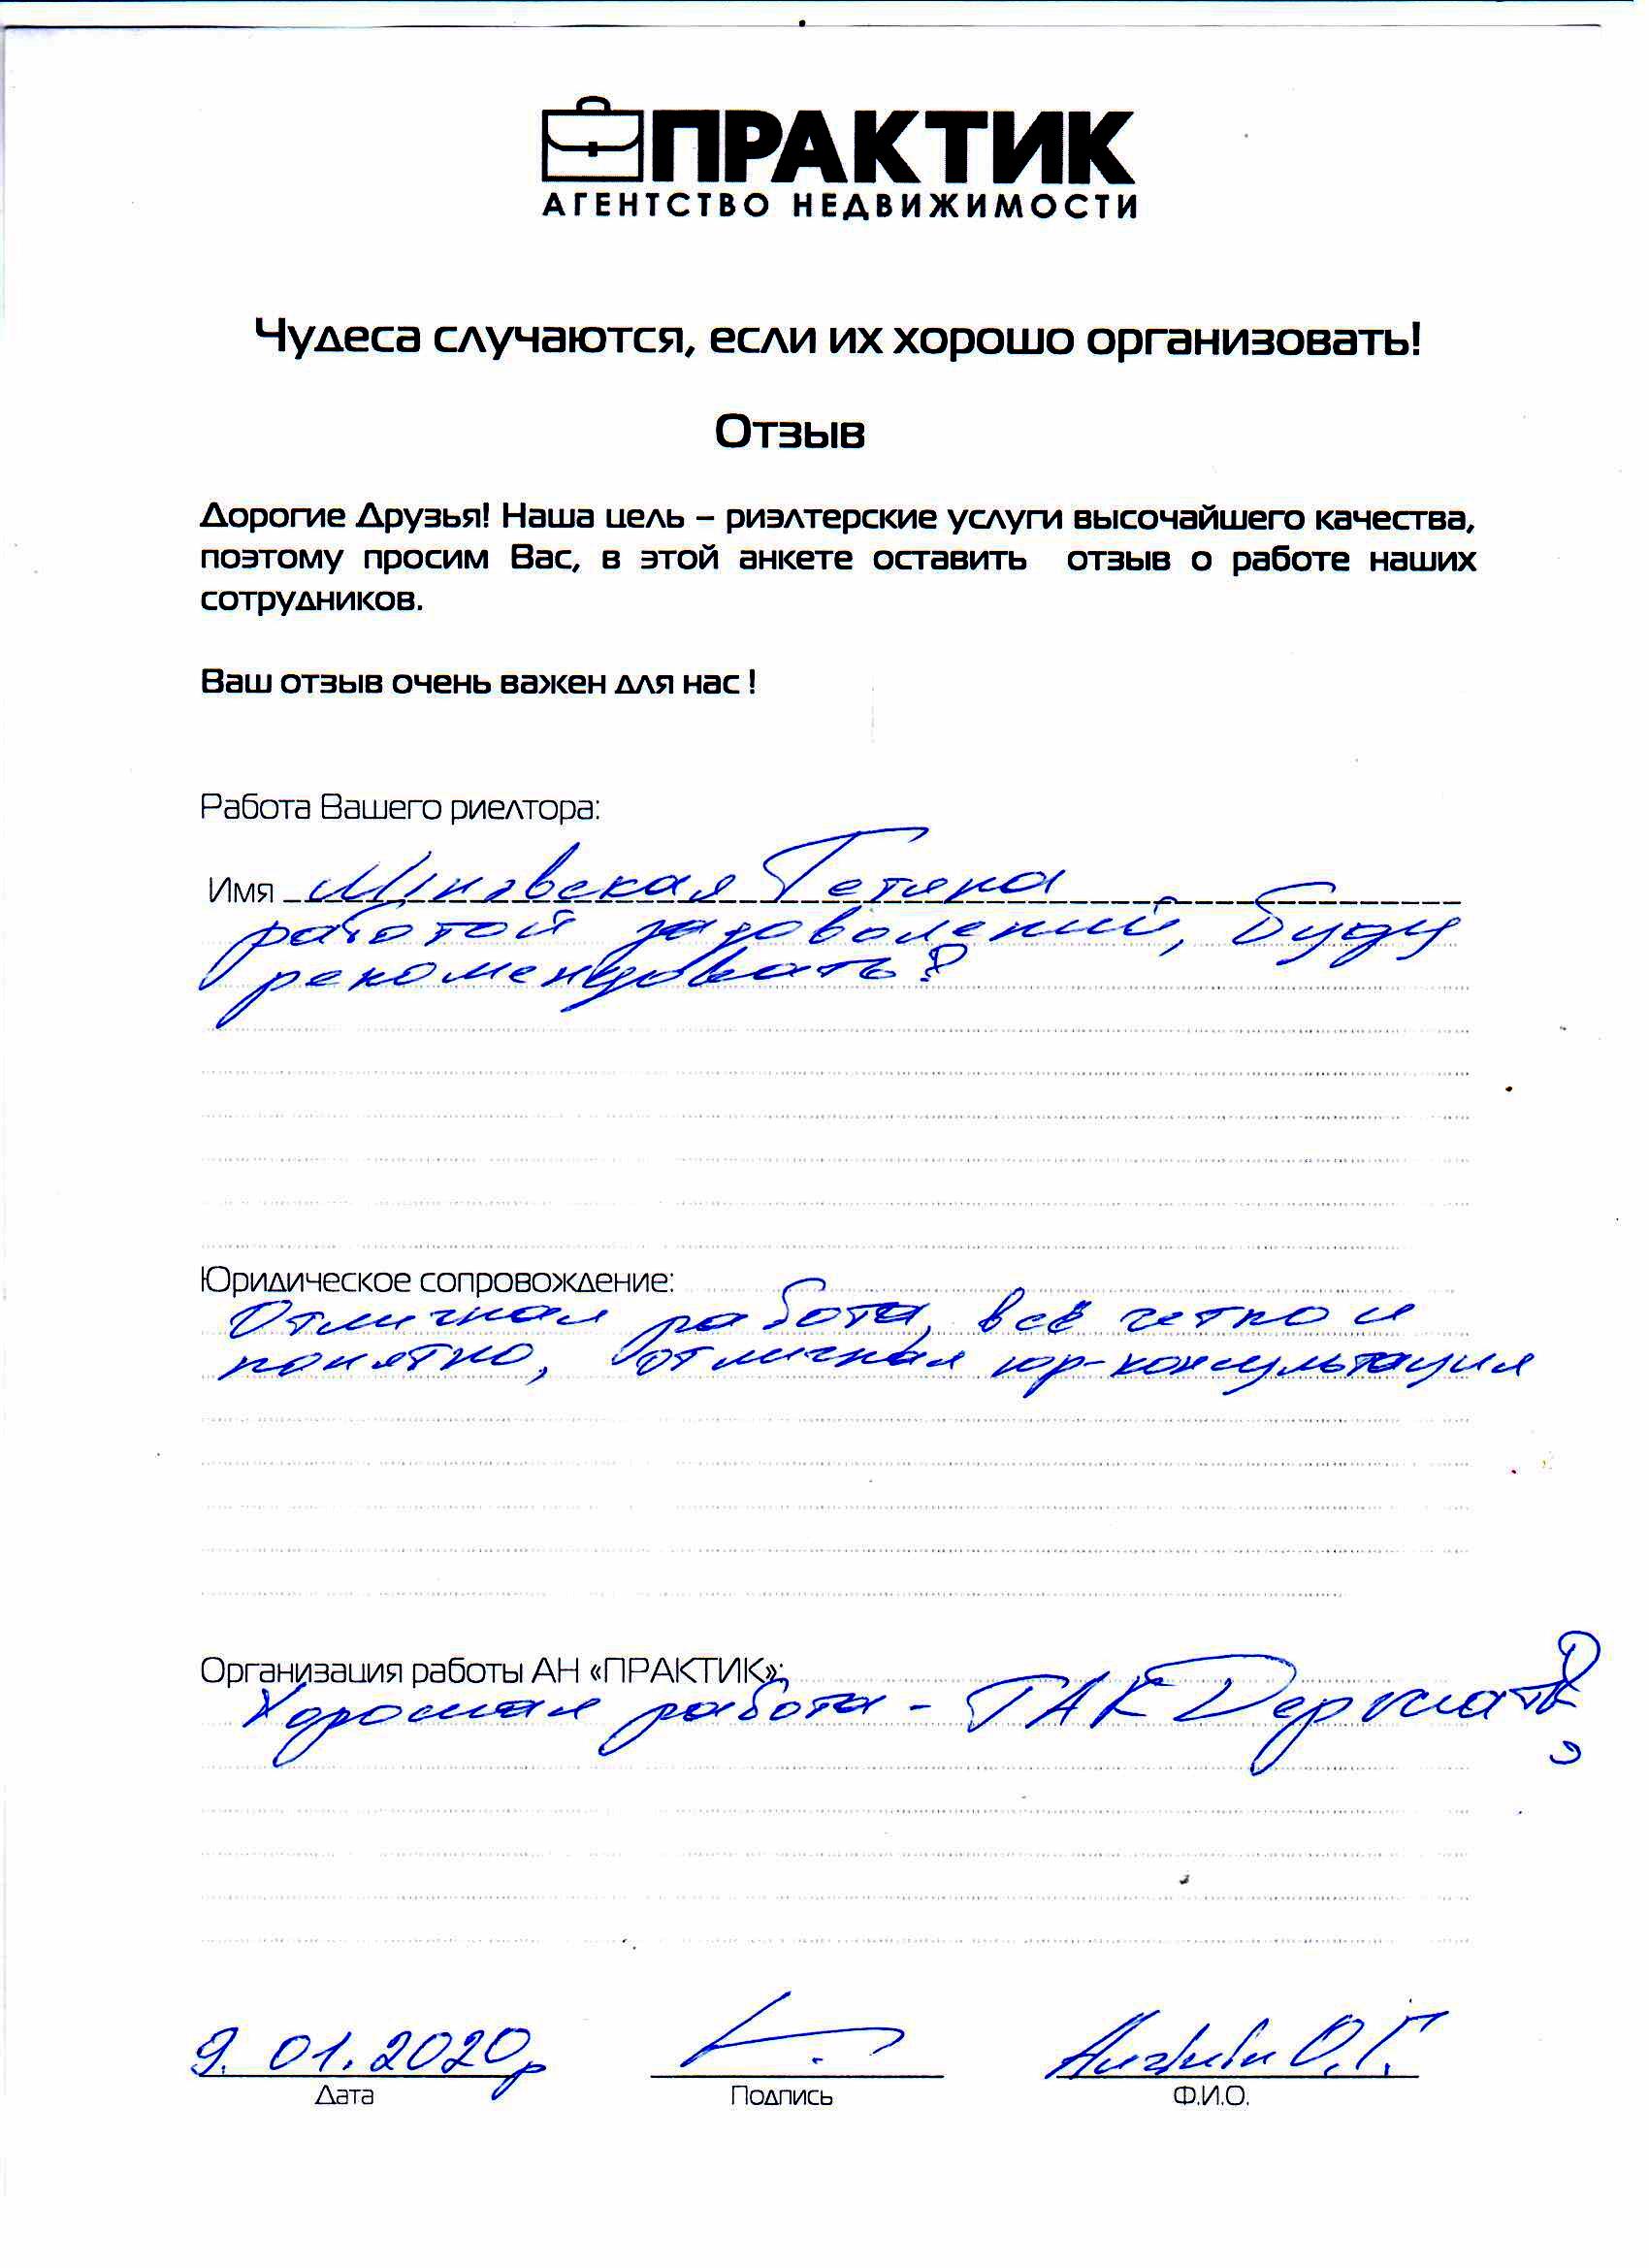 ПРАКТИК
АГЕНТСТВО НЕДВИЖИМОСТИ
Чудеса случаются, если их хорошо организовать!
Отзыв
Дорогие Друзья! Наша цель – риэлтерские услуги высочайшего качества,
поэтому просим Вас, в этой анкете оставить отзыв о работе наших
сотрудников.
Ваш отзыв очень важен для нас !
Работа Вашего риелтора:
Имя Тетяна
работой задоволений, Буду
рекомендовать!
Юридическое сопровождение:
Отличная работа, всё четко и
понятно, отличная юр-консультация
Организация работы АН «ПРАКТИК»:
Хорошая работа - ТАК Держать!
9.01.2020р
Дата
Подпись
О.Г.
Ф.И.О.